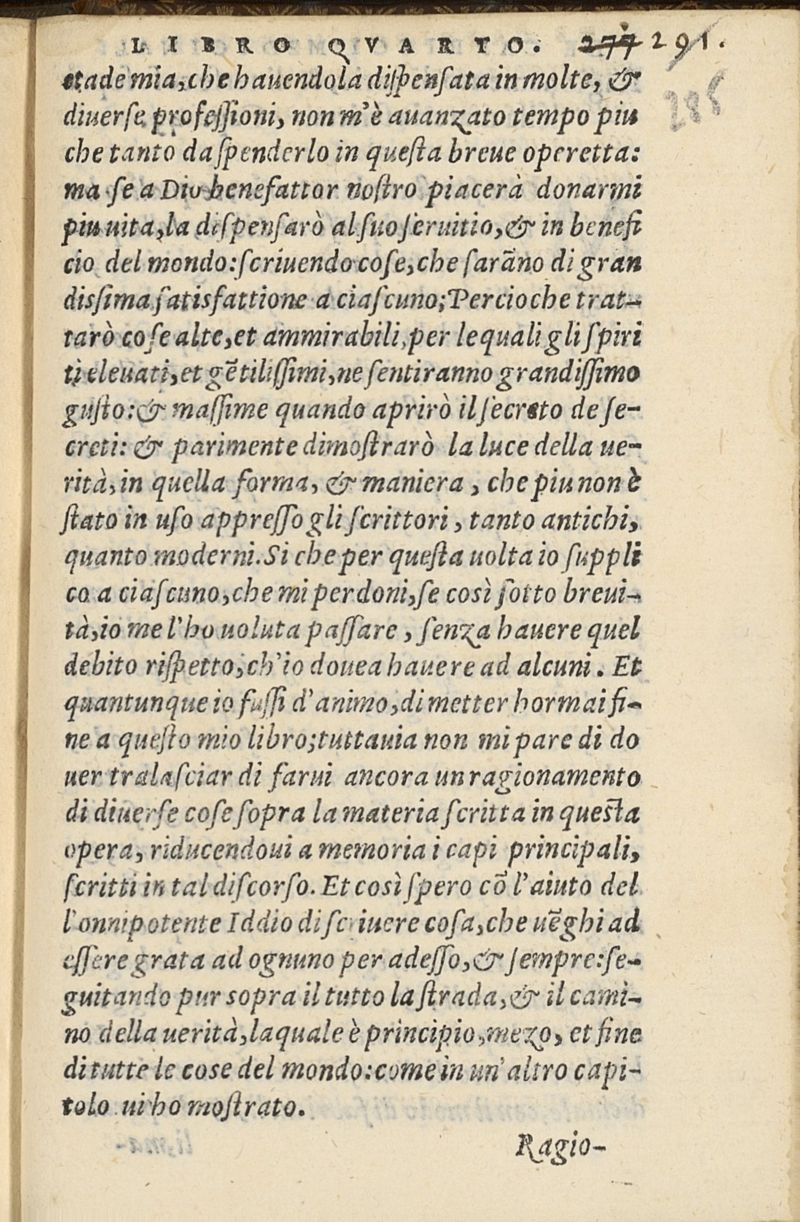 LIBRO QVARTO. 277 291.
285
etade mia, che hauendola dispensata in molte, &
diuerse professioni, non m'è auanzato tempo piu
che tanto da spenderlo in questa breue operetta:
ma se a Dio benefattor nostro piacerà donarmi
piu uita, la dispensarò al suo seruitio, & in benefi
cio del mondo: scriuendo cose, che sarāno di gran
dissima satisfattione a ciascuno; Percioche trat-
tarò cose alte, et ammirabili, per le quali gli spiri
ti eleuati, et gētilissimi, ne sentiranno grandissimo
gusto: & massime quando aprirò il secreto de se-
creti: & parimente dimostrarò la luce della ue-
rità, in quella forma, & maniera, che piu non è
stato in uso appresso gli scrittori, tanto antichi,
quanto moderni. Si che per questa uolta io suppli
co a ciascuno, che mi perdoni, se così sotto breui-
tà, io me l'ho uoluta passare, senza hauere quel
debito rispetto, ch'io douea hauere ad alcuni. Et
quantunque io fussi d'animo, di metter hormai fi-
ne a questo mio libro; tuttauia non mi pare di do
uer tralasciar di farui ancora un ragionamento
di diuerse cose sopra la materia scritta in questa
opera, riducendoui a memoria i capi principali,
scritti in tal discorso. Et così spero cō l'aiuto del
l'onnipotente Iddio di scriuere cosa, che uēghi ad
essere grata ad ognuno per adesso, & sempre: se-
guitando pur sopra il tutto la strada, & il cami-
no della uerità, laquale è principio, mezo, et fine
di tutte le cose del mondo: come in un'altro capi-
tolo ui ho mostrato.
Ragio-